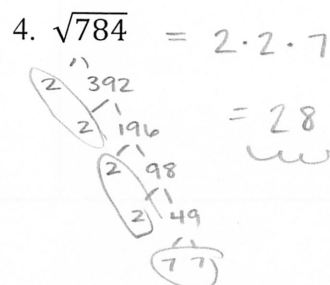 4. √784 = 2·2·7
2 392 = 28
2 196
2 98
2 49
7 7